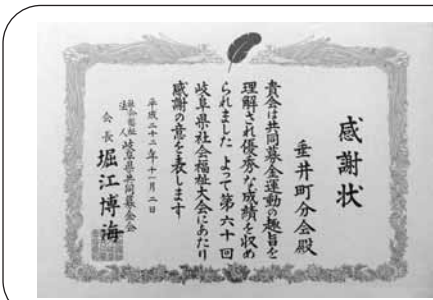 感謝状
垂井町分会殿
貴会は共同募金運動の趣旨を
理解され優秀な成績を収め
られました よって第六十回
岐阜県社会福祉大会にあたり
感謝の意を表します
平成二十二年十一月二日
社会福祉法人 岐阜県共同募金会
会長 堀江博海